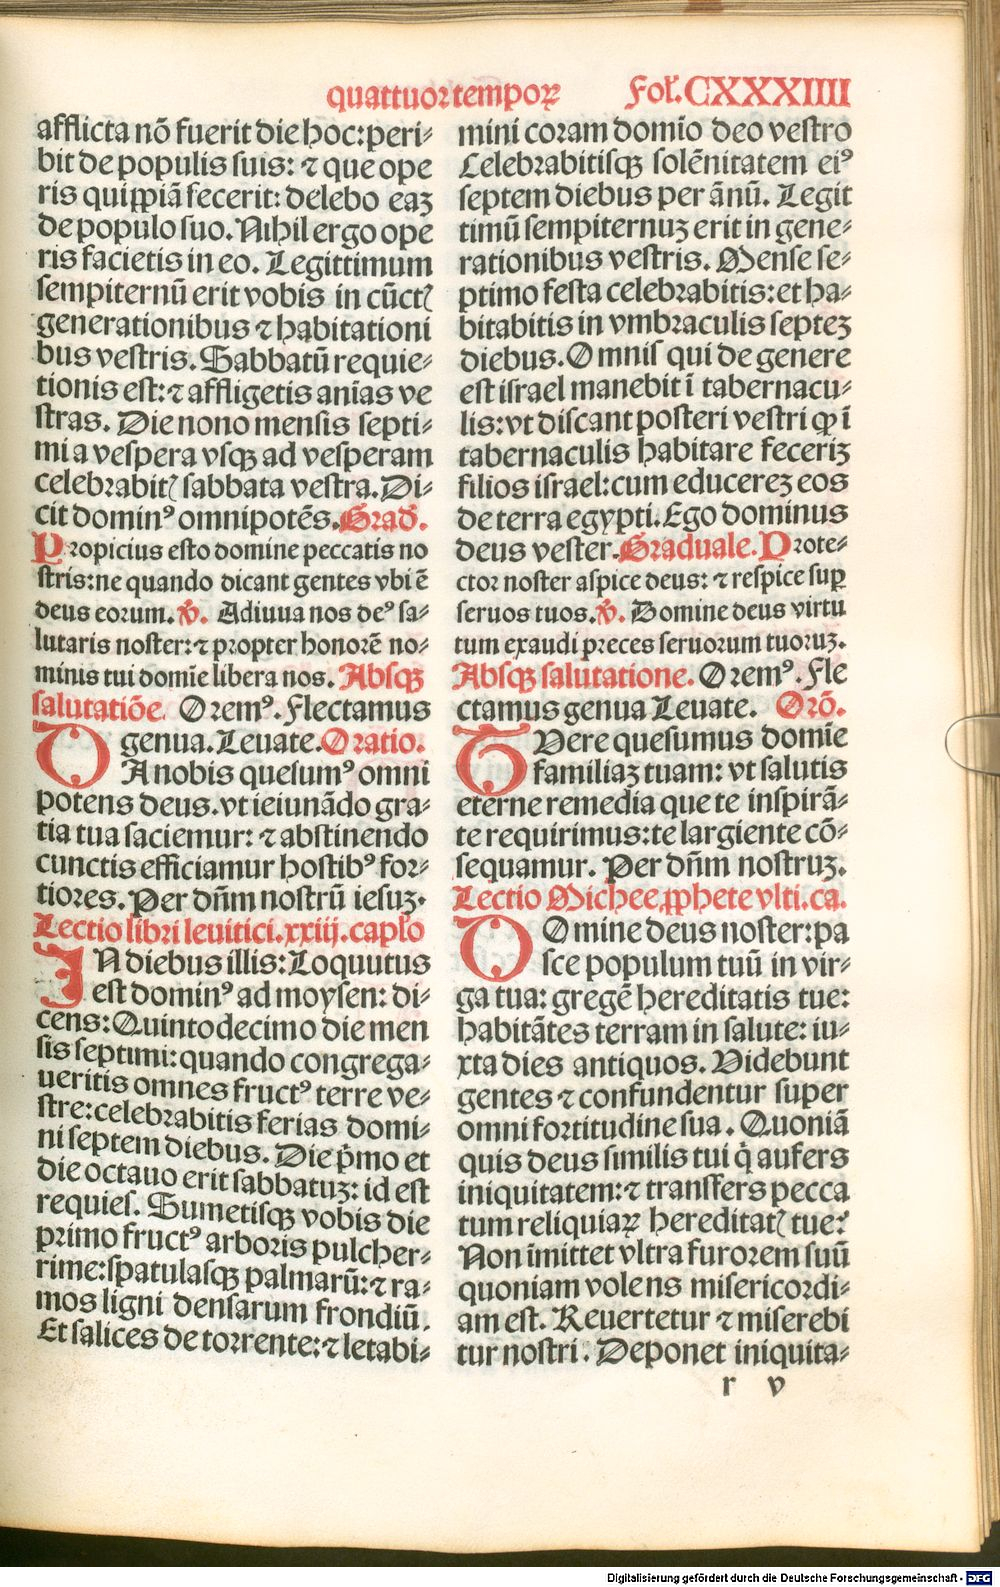 quattuor tempoꝝ Fol. CXXXIIII
afflicta nō fuerit die hoc: peri⸗
bit de populis suis: ⁊ que ope
ris quippiā fecerit: delebo eaȝ
de populo suo. Nihil ergo ope
ris facietis in eo. Legittimum
sempiternū erit vobis in cūctꝭ
generationibus ⁊ habitationi
bus vestris. Sabbatū requie⸗
tionis est: ⁊ affligetis aniās ve
stras. Die nono mensis septi⸗
mi a vespera vsqꝫ ad vesperam
celebrabitꝭ sabbata vestra. Di⸗
cit dominꝰ omnipotēs. Grad̄.
Propicius esto domine peccatis no
stris: ne quando dicant gentes vbi ē
deus eorum. ℣. Adiuua nos deꝰ sa⸗
lutaris noster: ⁊ propter honorē no⸗
minis tui domīe libera nos. Absqꝫ
salutatiōe. Oremꝰ. Flectamus
genua. Leuate. Oratio.
DA nobis quesumꝰ omni
potens deus. vt ieiunādo gra⸗
tia tua saciemur: ⁊ abstinendo
cunctis efficiamur hostibꝰ for⸗
tiores. Per dn̄m nostrū iesuȝ.
Lectio libri leuitici. xxiij. caplo
IN diebus illis: Loquutus
est dominꝰ ad moysen: di⸗
cens: Quintodecimo die men
sis septimi: quando congrega⸗
ueritis omnes fructꝰ terre ve⸗
stre: celebrabitis ferias domi⸗
ni septem diebus. Die p̄mo et
die octauo erit sabbatuȝ: id est
requies. Sumetisqꝫ vobis die
primo fructꝰ arboris pulcher⸗
rime: spatulasqꝫ palmarū: ⁊ ra⸗
mos ligni densarum frondiū.
Et salices de torrente: ⁊ letabi⸗
mini coram domīo deo vestro
Celebrabitisqꝫ solēnitatem eiꝰ
septem diebus per ānū. Legit
timū sempiternuȝ erit in gene⸗
rationibus vestris. Mense se⸗
ptimo festa celebrabitis: et ha⸗
bitabitis in vmbraculis septeȝ
diebus. Omnis qui de genere
est israel manebit ī tabernacu⸗
lis: vt discant posteri vestri ꝙ ī
tabernaculis habitare feceriȝ
filios israel: cum educereȝ eos
de terra egypti. Ego dominus
deus vester. Graduale. Prote⸗
ctor noster aspice deus: ⁊ respice suꝑ
seruos tuos. ℣. Domine deus virtu
tum exaudi preces seruorum tuoruȝ.
Absqꝫ salutatione. Oremꝰ. Fle
ctamus genua Leuate. Orō.
TVere quesumus domīe
familiaȝ tuam: vt salutis
eterne remedia que te inspirā⸗
te requirimus: te largiente cō⸗
sequamur. Per dn̄m nostruȝ.
Lectio Michee ꝓphete vlti. ca.
DOmine deus noster: pa
sce populum tuū in vir⸗
ga tua: gregē hereditatis tue:
habitātes terram in salute: iu⸗
xta dies antiquos. Videbunt
gentes ⁊ confundentur super
omni fortitudine sua. Quoniā
quis deus similis tui q̇ aufers
iniquitatem: ⁊ transfers pecca
tum reliquiaꝝ hereditatꝭ tue?
Non īmittet vltra furorem suū
quoniam volens misericordi⸗
am est. Reuertetur ⁊ miserebi
tur nostri. Deponet iniquita⸗
r v
Digitalisierung gefördert durch die Deutsche Forschungsgemeinschaft - DFG